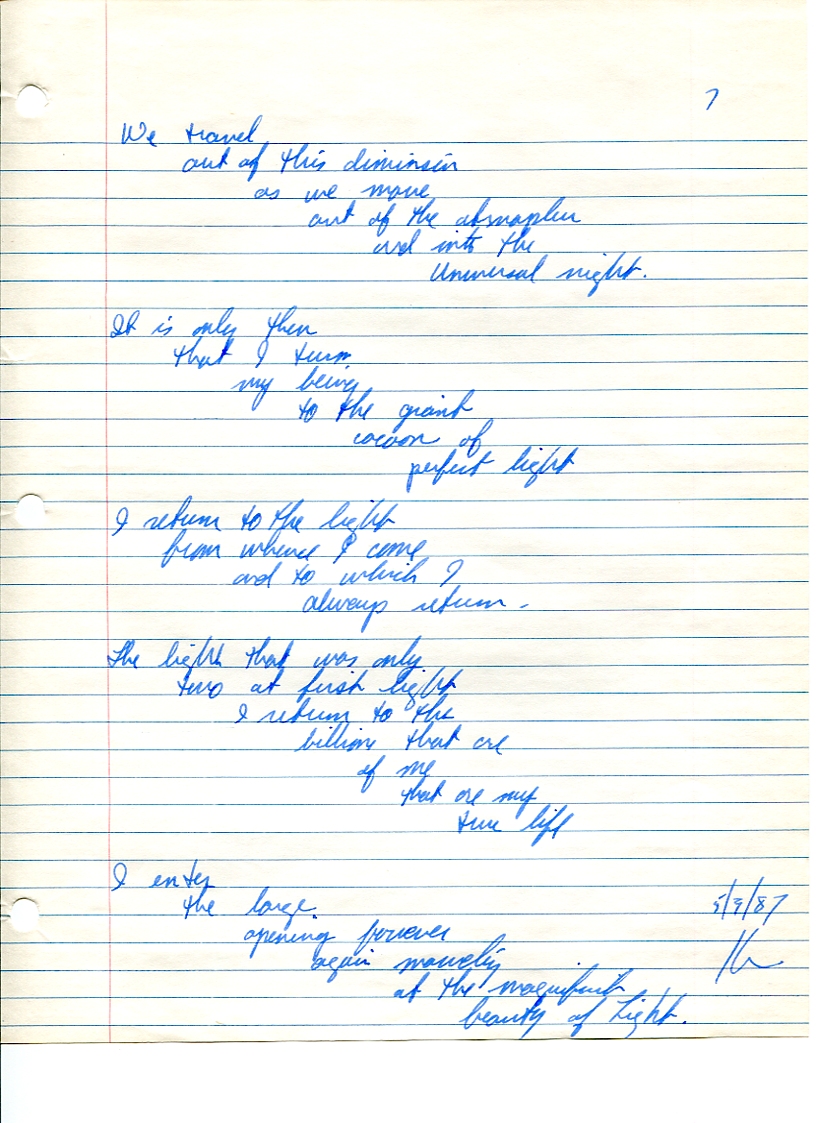 7
We travel
out of this diminsin
as we move
out of the atmospher
and into the
Universal night.
It is only then
that I turn
my being
to the giant
cocoon of
perfect light
I return to the light
from whence I come
and to which I
always return.
The light that was only
two at first light
I return to the
billions that are
of me
that are my
true life
I enter
the large
opening forever
again
at the magnificent
beauty of Light.
5/9/87